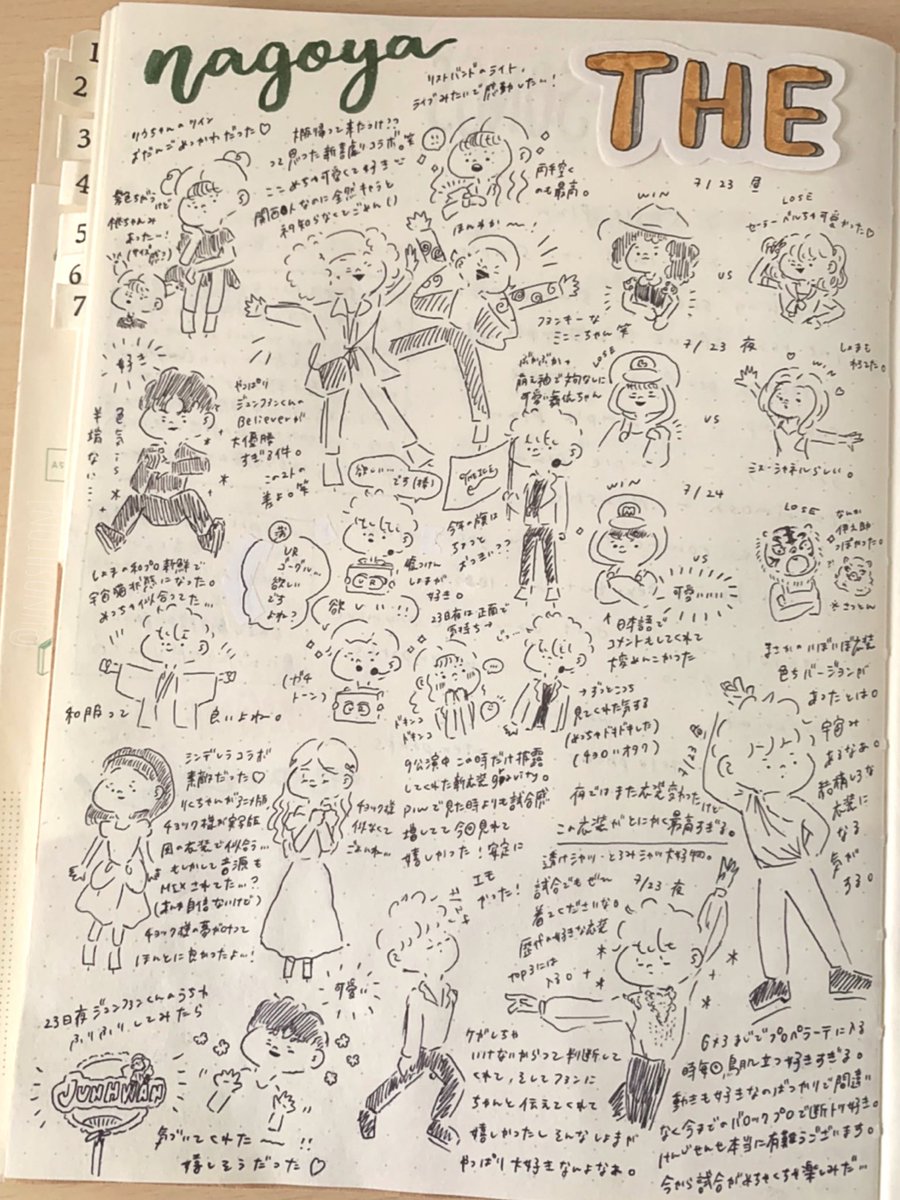 1
2
3
4
5
6
7
A5
nagoya
THE
リストバンドのライト、
ライブみたいで感動したー!
りかちゃんのツイン
おだんごめっかわだった♡
大阪帰って来たっけ??
って思った新喜劇コラボ。笑
ここめちゃ可愛くて好き
関西人なのに全然キャラと
か知らなくてごめん()
髪色ちがうけど
桃ちゃんみ
あったー!
両手空く
のも最高。
ほんわかー!
ファンキーな
ミニーちゃん 笑
7/23 昼
WIN
LOSE
セーラーベルちゃ可愛かった♡
vs
7/23 夜
LOSE
WIN
ぶかぶかの
萌え袖で文句なしに
可愛い舞依ちゃん
vs
しょまも
わろてた。
ミス・シャネルらしい。
好き
色気is
半端ない…
やっぱり
ジュンファンくんの
Believerが
大優勝
すぎる件。
このストの
差よ。笑
欲しい…
です(棒)
今年の旗は
ちょっと
おっきい??
嘘つけん
しょまが
好き。
VR
ゴーグル…
欲しい
です
よね?
(欲しい!!)
(ガチ
トーン)
7/24
WIN
vs
LOSE
なんか
伊之助
っぽかった。
*さっとん
可愛いいいい
↑日本語で
コメントもしてくれて
大変めんこかった
しょまの和プロ新鮮で
宇宙猫状態になった。
めっちゃ似合ってた…
和服って
良いよね。
23日夜は正面で
気持ち→
ドキンコ
ドキンコ
→ずっとこっち
見てくれた気する
(めっちゃドキドキした)
(チョロいオタク)
まさかのいぼいぼ衣装
色ちバージョンが
あったとは。
宇宙み
あるなぁ。
結構しろな
衣装に
なる
気が
する。
シンデレラコラボ
素敵だった♡
りくちゃんがアニメ版
チョック様が実写版
風の衣装で似合う…
もしかして音源も
MIXされてた…?
(あんま自信ないけど)
チョック様の夢がかなって
ほんとに良かったよー!
チョック様
似なくて
ごめんね…
9公演中この時だけ披露
してくれた新衣装Gravity。
PIWで見た時よりも試合感
増してて今回見れて
嬉しかった!安定に
エモ
かった!
7/23 夜
夜ではまた衣装変わったけど
この衣装がとにかく最高すぎる。
透けシャツ・とろみシャツ大好物。
試合でもぜひ
着てくださいな。
歴代の好きな衣装
top3には
入る。
7/23 夜
23日夜ジュンファンくんのうちわ
ふりふりしてみたら
可愛い
JUNHWAN
気づいてくれたー!!
嬉しそうだった♡
ケガしちゃ
いけないからって判断して
くれて、そしてファンに
ちゃんと伝えてくれて
嬉しかったしそんなしょまが
やっぱり大好きなんよなぁ。
Gメジまでプロペラーテに入る
時毎回鳥肌立つ好きすぎる。
動きも好きなのばっかりで間違い
なく今までのバロックプロで断トツ好き。
けんじせんせ本当に有難うございます。
今から試合がめちゃくちゃ楽しみだ…